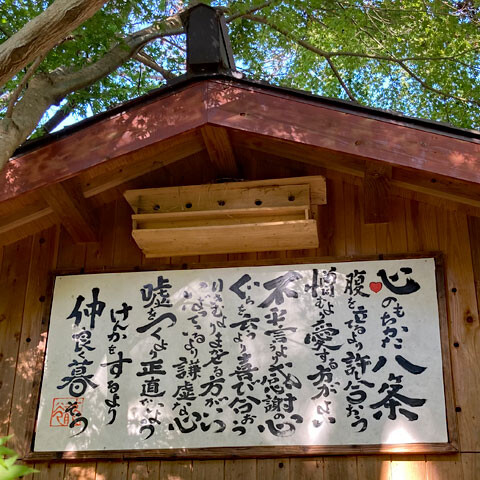 心のもちかた八ヶ条
腹を立るより許し合おう
憎むより愛する方がよい
不平言うより感謝の心
ぐちを云うより喜び合おう
りきむよりまかせる方がいい
いばるより謙虚な心
嘘をつくより正直に行こう
けんかをするより
仲良く暮そう